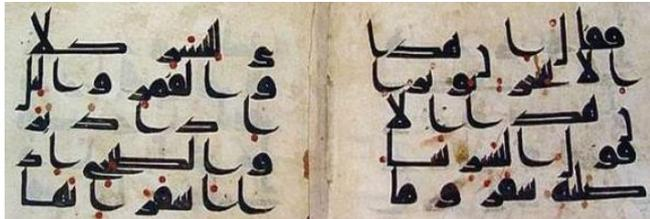 فقال ان هذا
الا سحر يوثر ا
ن هذا الا
قول البشر سا
صليه سقر و ما
ى للبشر كلا
و القمر و اليل
اذ ادبر
و الصبح اذ
ا اسفر انها